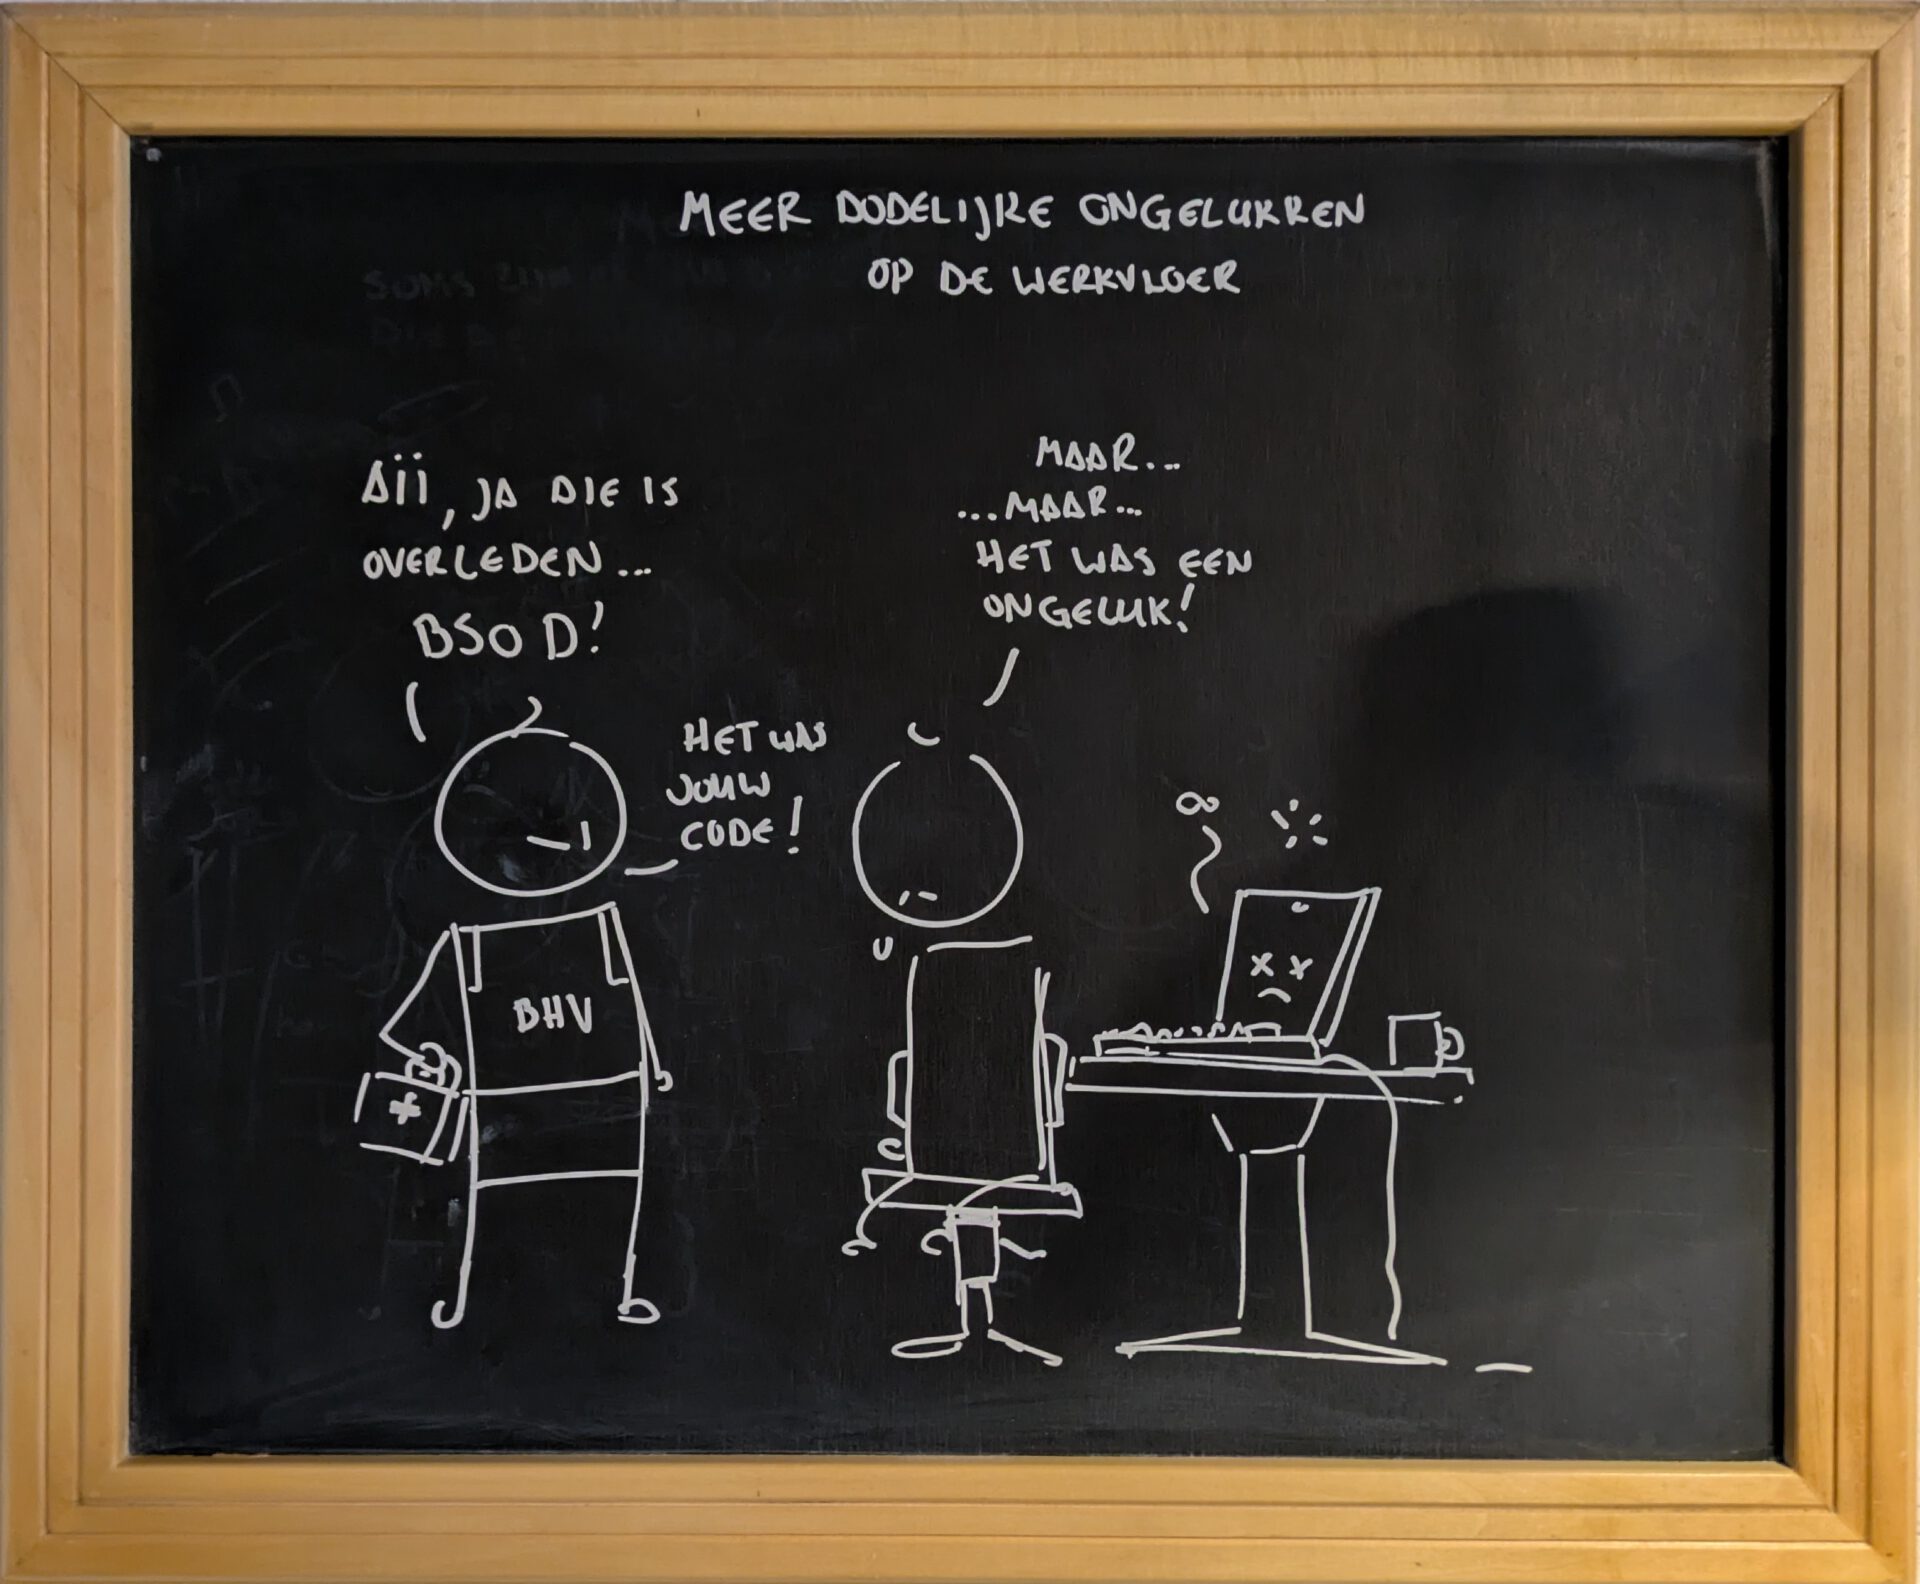 MEER DODELIJKE ONGELUKKEN
OP DE WERKVLOER
AÏÏ, JA DIE IS
OVERLEDEN...
BSOD!
HET WAS
JOUW
CODE!
MAAR...
...MAAR...
HET WAS EEN
ONGELUK!
BHV